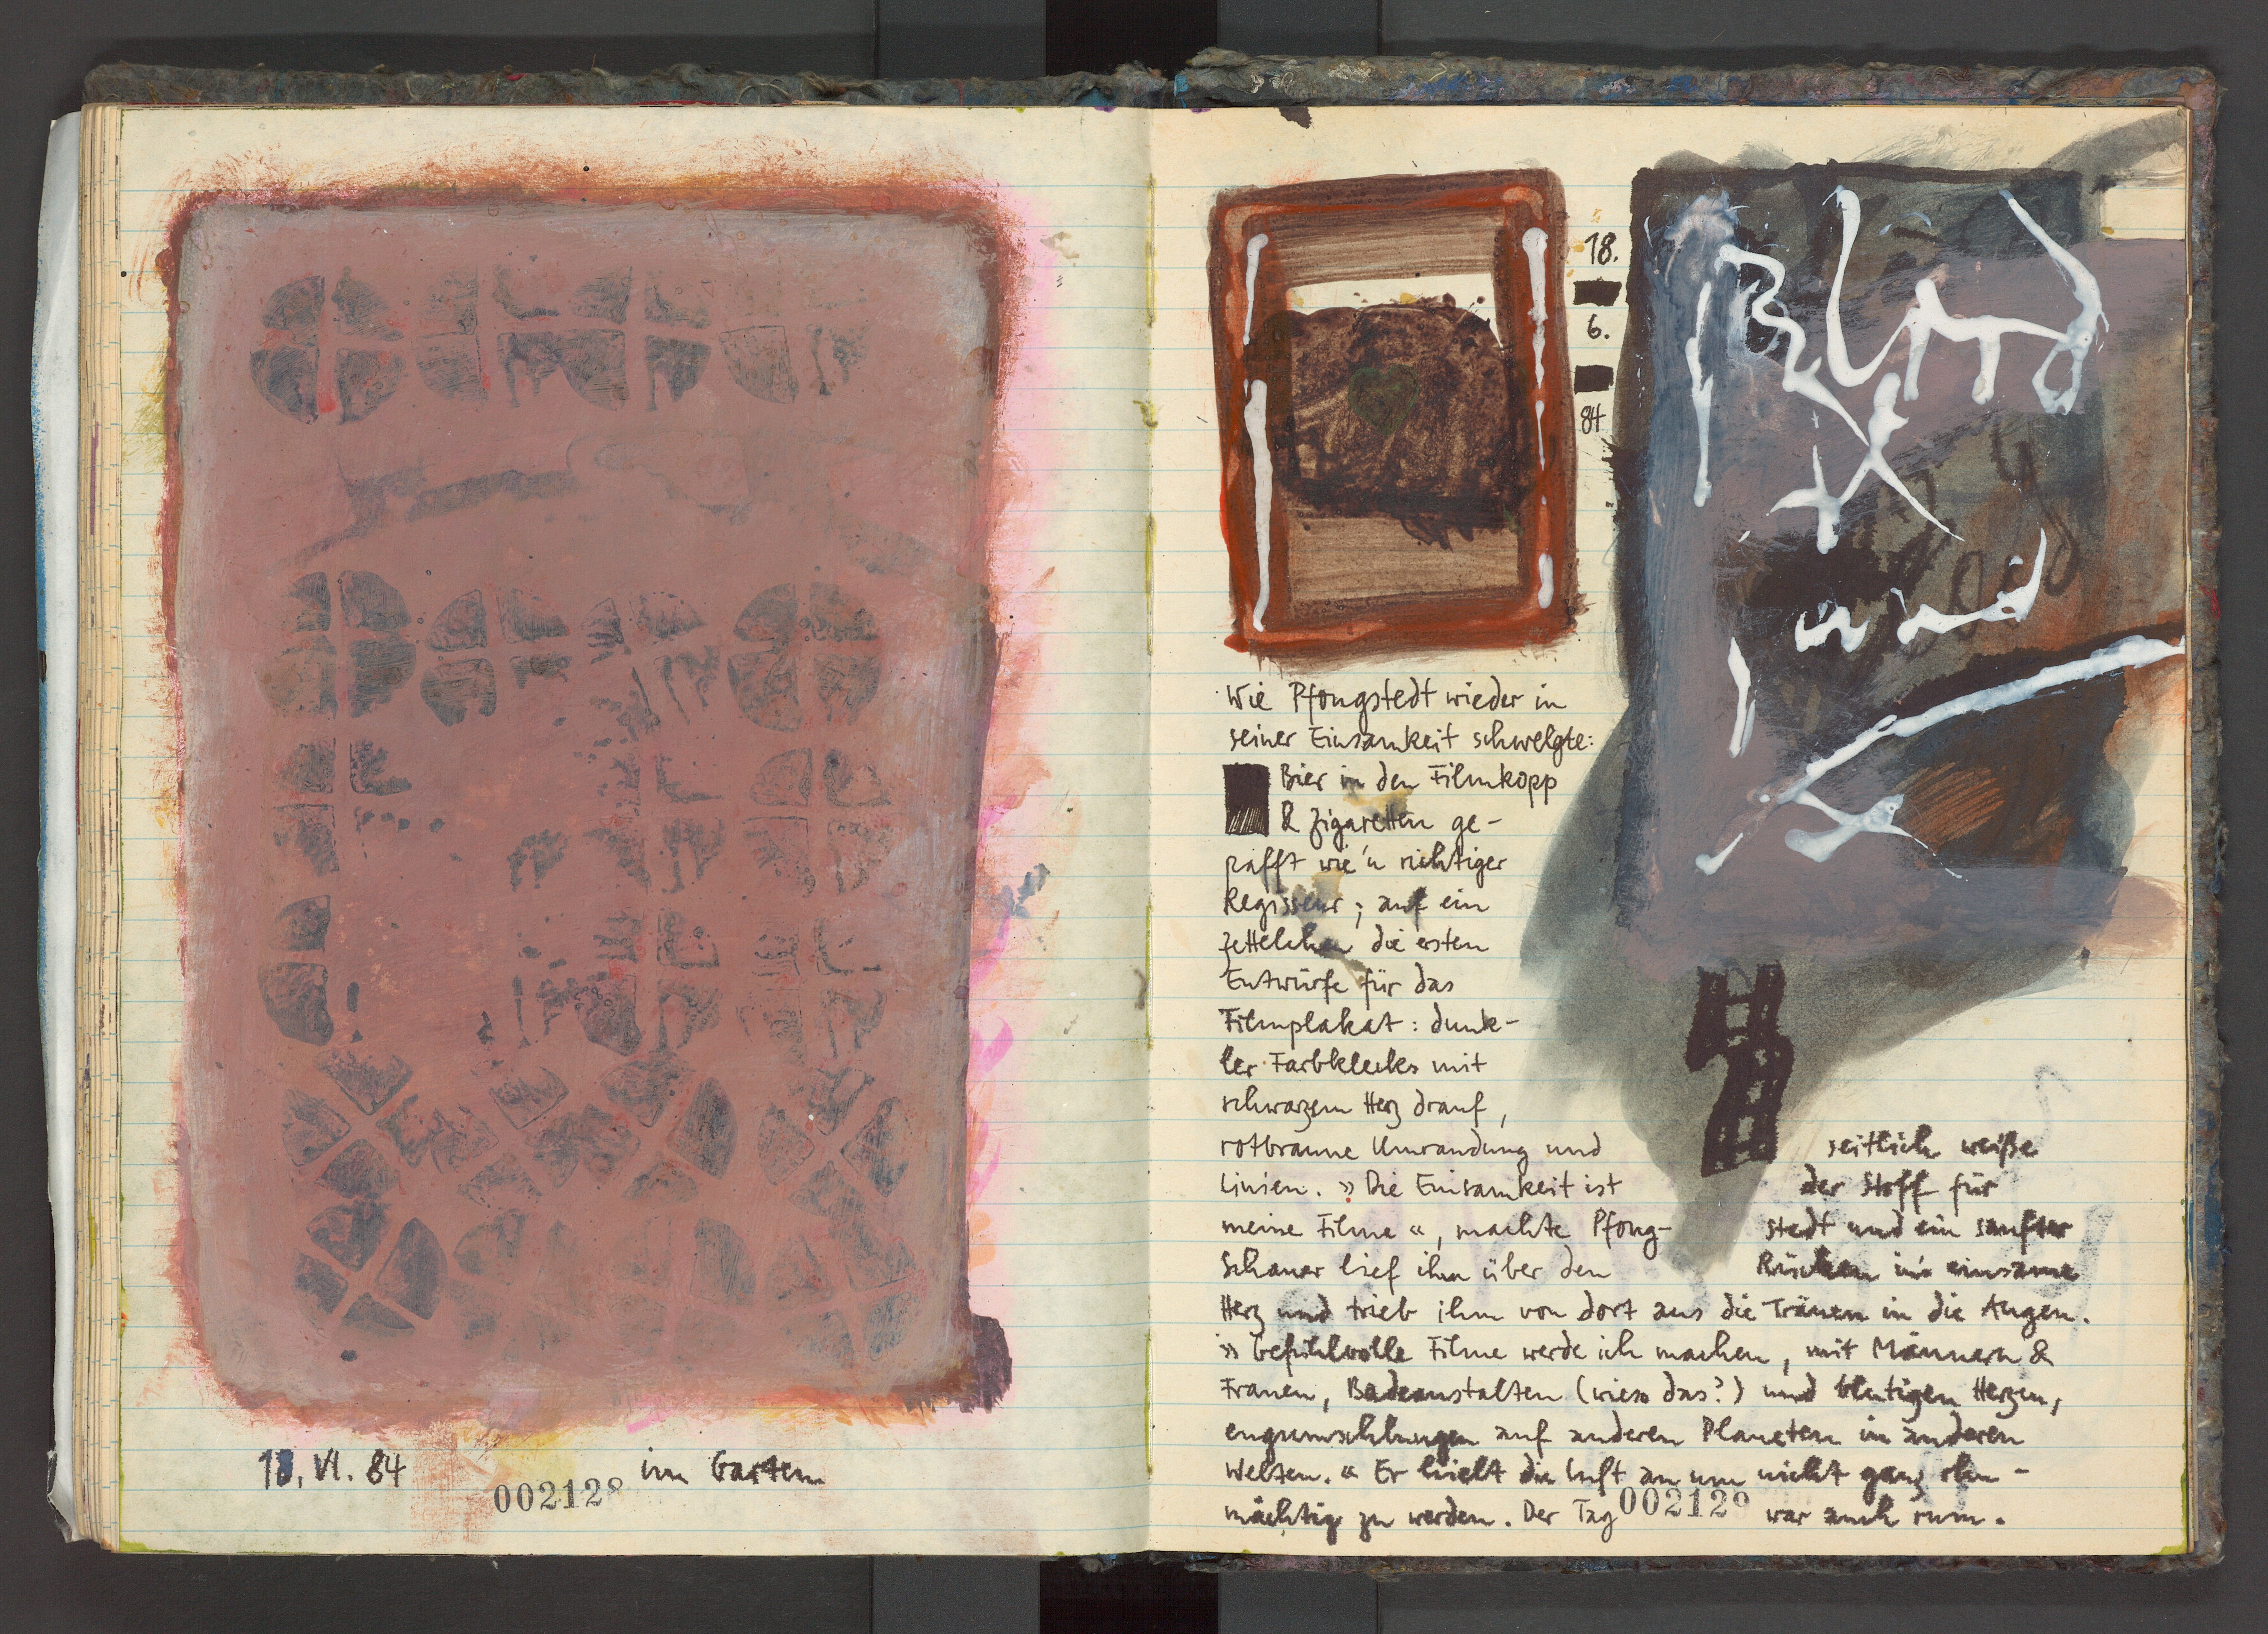 18. VI. 84 im Garten
002128
18.
6.
84
Blut
und
Gold
Wie Pfongstedt wieder in
seiner Einsamkeit schwelgte:
Bier in den Filmkopp
& Zigaretten ge-
pafft wie'n richtiger
Regisseur; auf ein
Zettelchen die ersten
Entwürfe für das
Filmplakat: dunk-
ler Farbklecks mit
schwarzem Herz drauf,
rotbraune Umrandung und seitlich weiße
Linien. »Die Einsamkeit ist der Stoff für
meine Filme«, machte Pfong- stedt und ein sanfter
Schauer lief ihm über den Rücken in's einsame
Herz und trieb ihm von dort aus die Tränen in die Augen.
»Gefühlvolle Filme werde ich machen, mit Männern &
Frauen, Badeanstalten (wieso das?) und blutigen Herzen,
engumschlungen auf anderen Planeten in anderen
Welten.« Er hielt die Luft an um nicht ganz ohn-
mächtig zu werden. Der Tag war auch rum.
002129